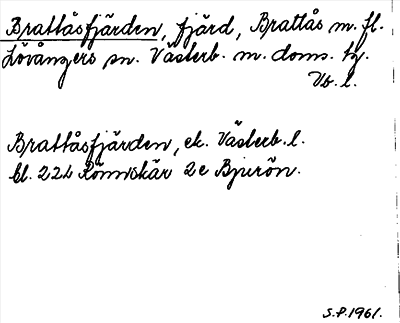 Brattåsfjärden, fjärd, Brattås m. fl.
Lövångers sn. Västerb. m. doms. tg.
Vb. l.
Brattåsfjärden, ek. Västerb. l.
bl. 22L Rönnskär 2e Bjurön.
S.P. 1961.